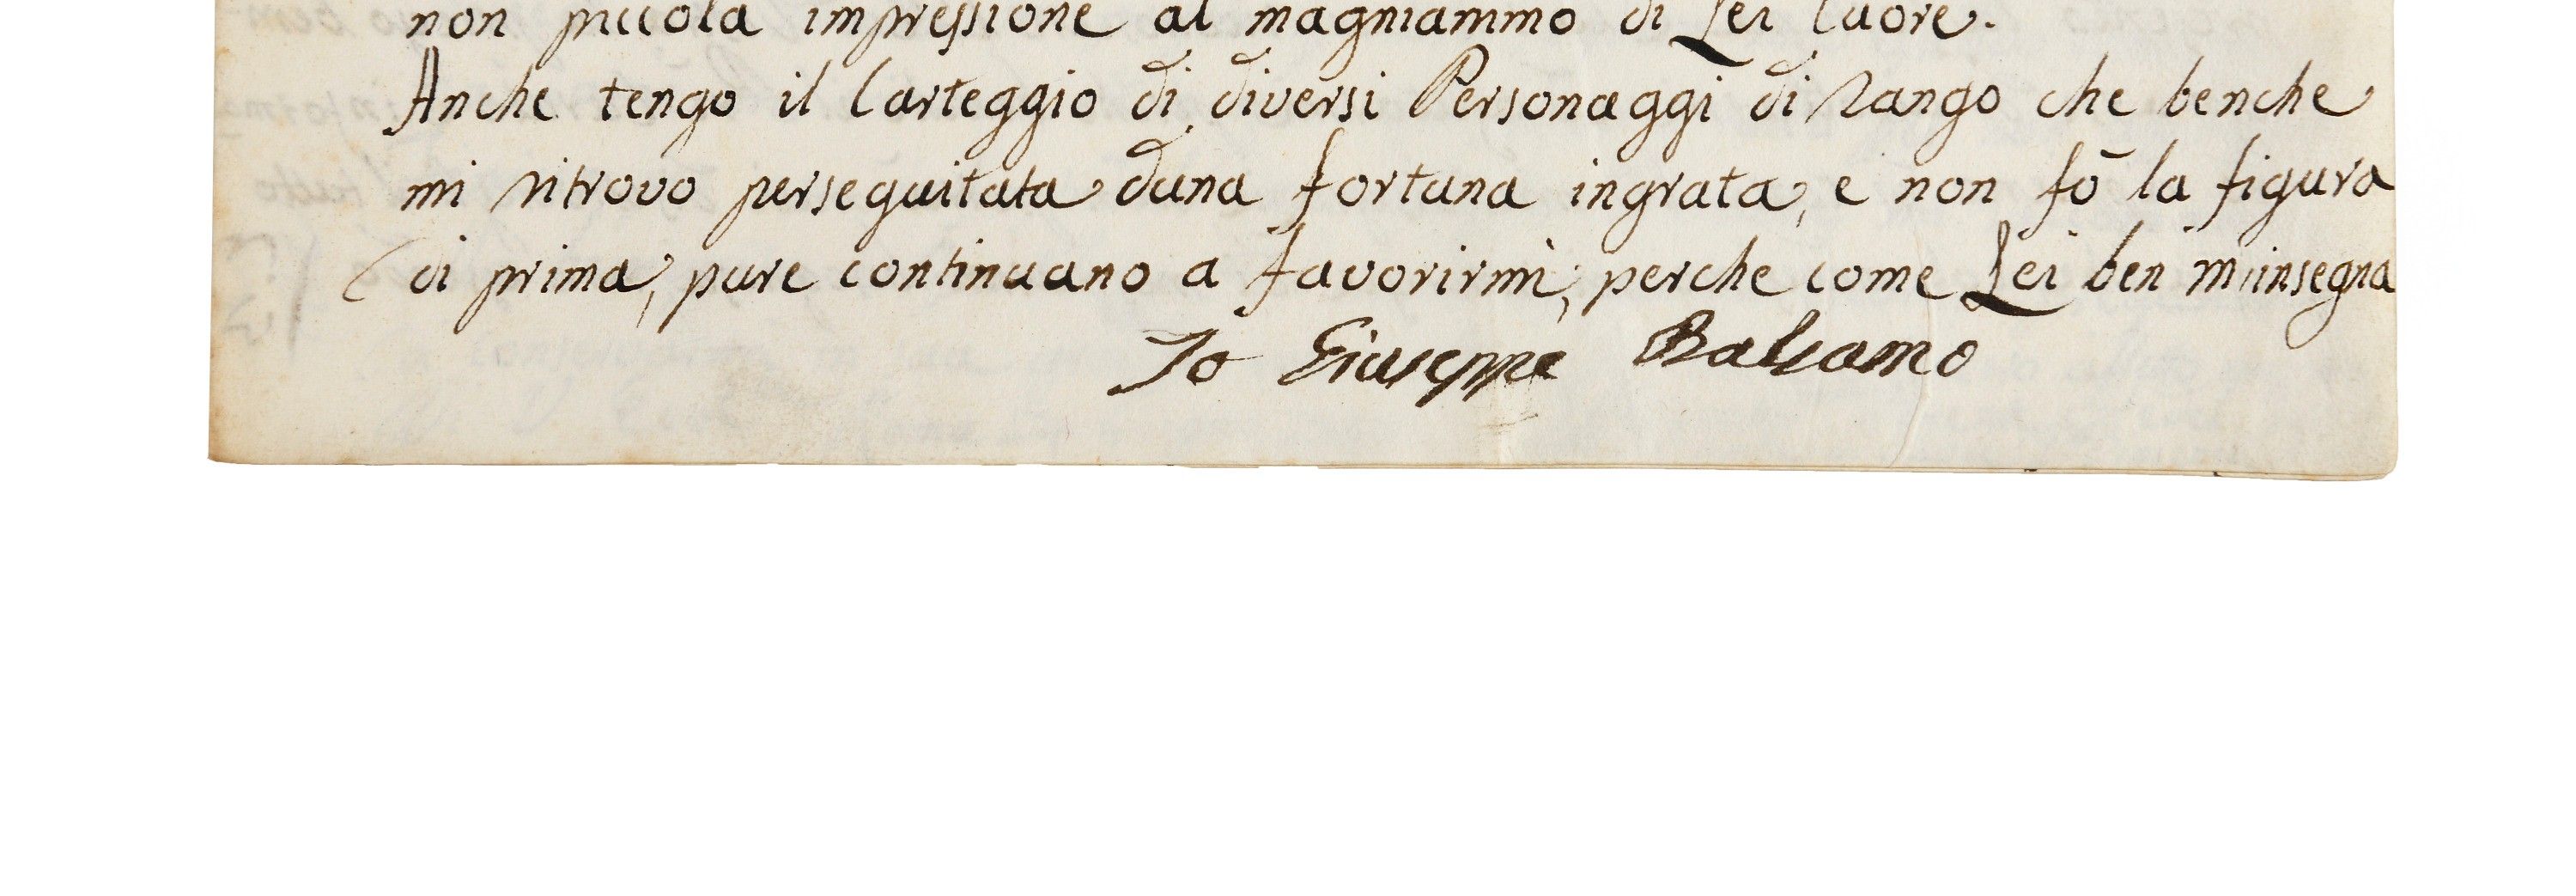 non piccola impressione al magnianimo di Lei Cuore.
Anche tengo il Carteggio di diversi Personaggi di Rango che benche
mi ritrovo perseguitata duna fortuna ingrata, e non fò la figura
di prima, pure continuano a favorirmi, perche come Lei ben m'insegna
Io Giuseppe Balsamo